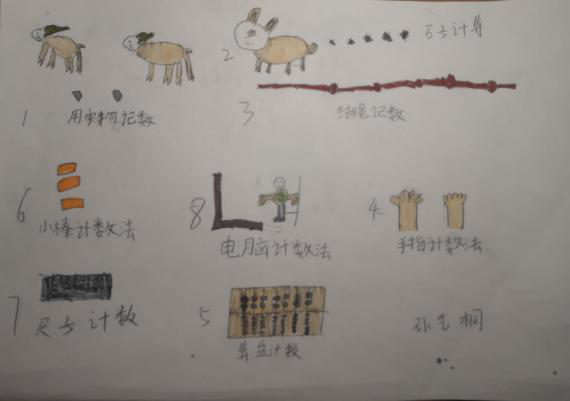 2 石子计算
1 用实物记数
3 结绳记数
6 小棒计数法
8 电脑计数法
4 手指计数法
7 尺子计数
5 算盘计数
孙艺桐